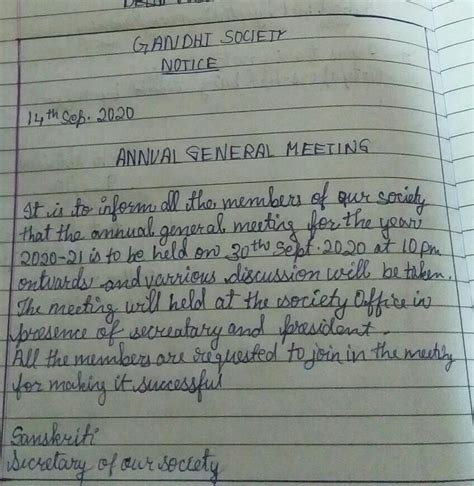 GANDHI SOCIETY
NOTICE
14th Sep. 2020
ANNUAL GENERAL MEETING
It is to inform all the members of our society
that the annual general meeting for the year
2020-21 is to be held on 30th Sept. 2020 at 10 pm
ontwards and varrious discussion will be taken.
The meeting will held at the society Office in
presence of secreatary and president.
All the members are requested to join in the meeting
for making it successful
Sanskriti
Secretary of our society